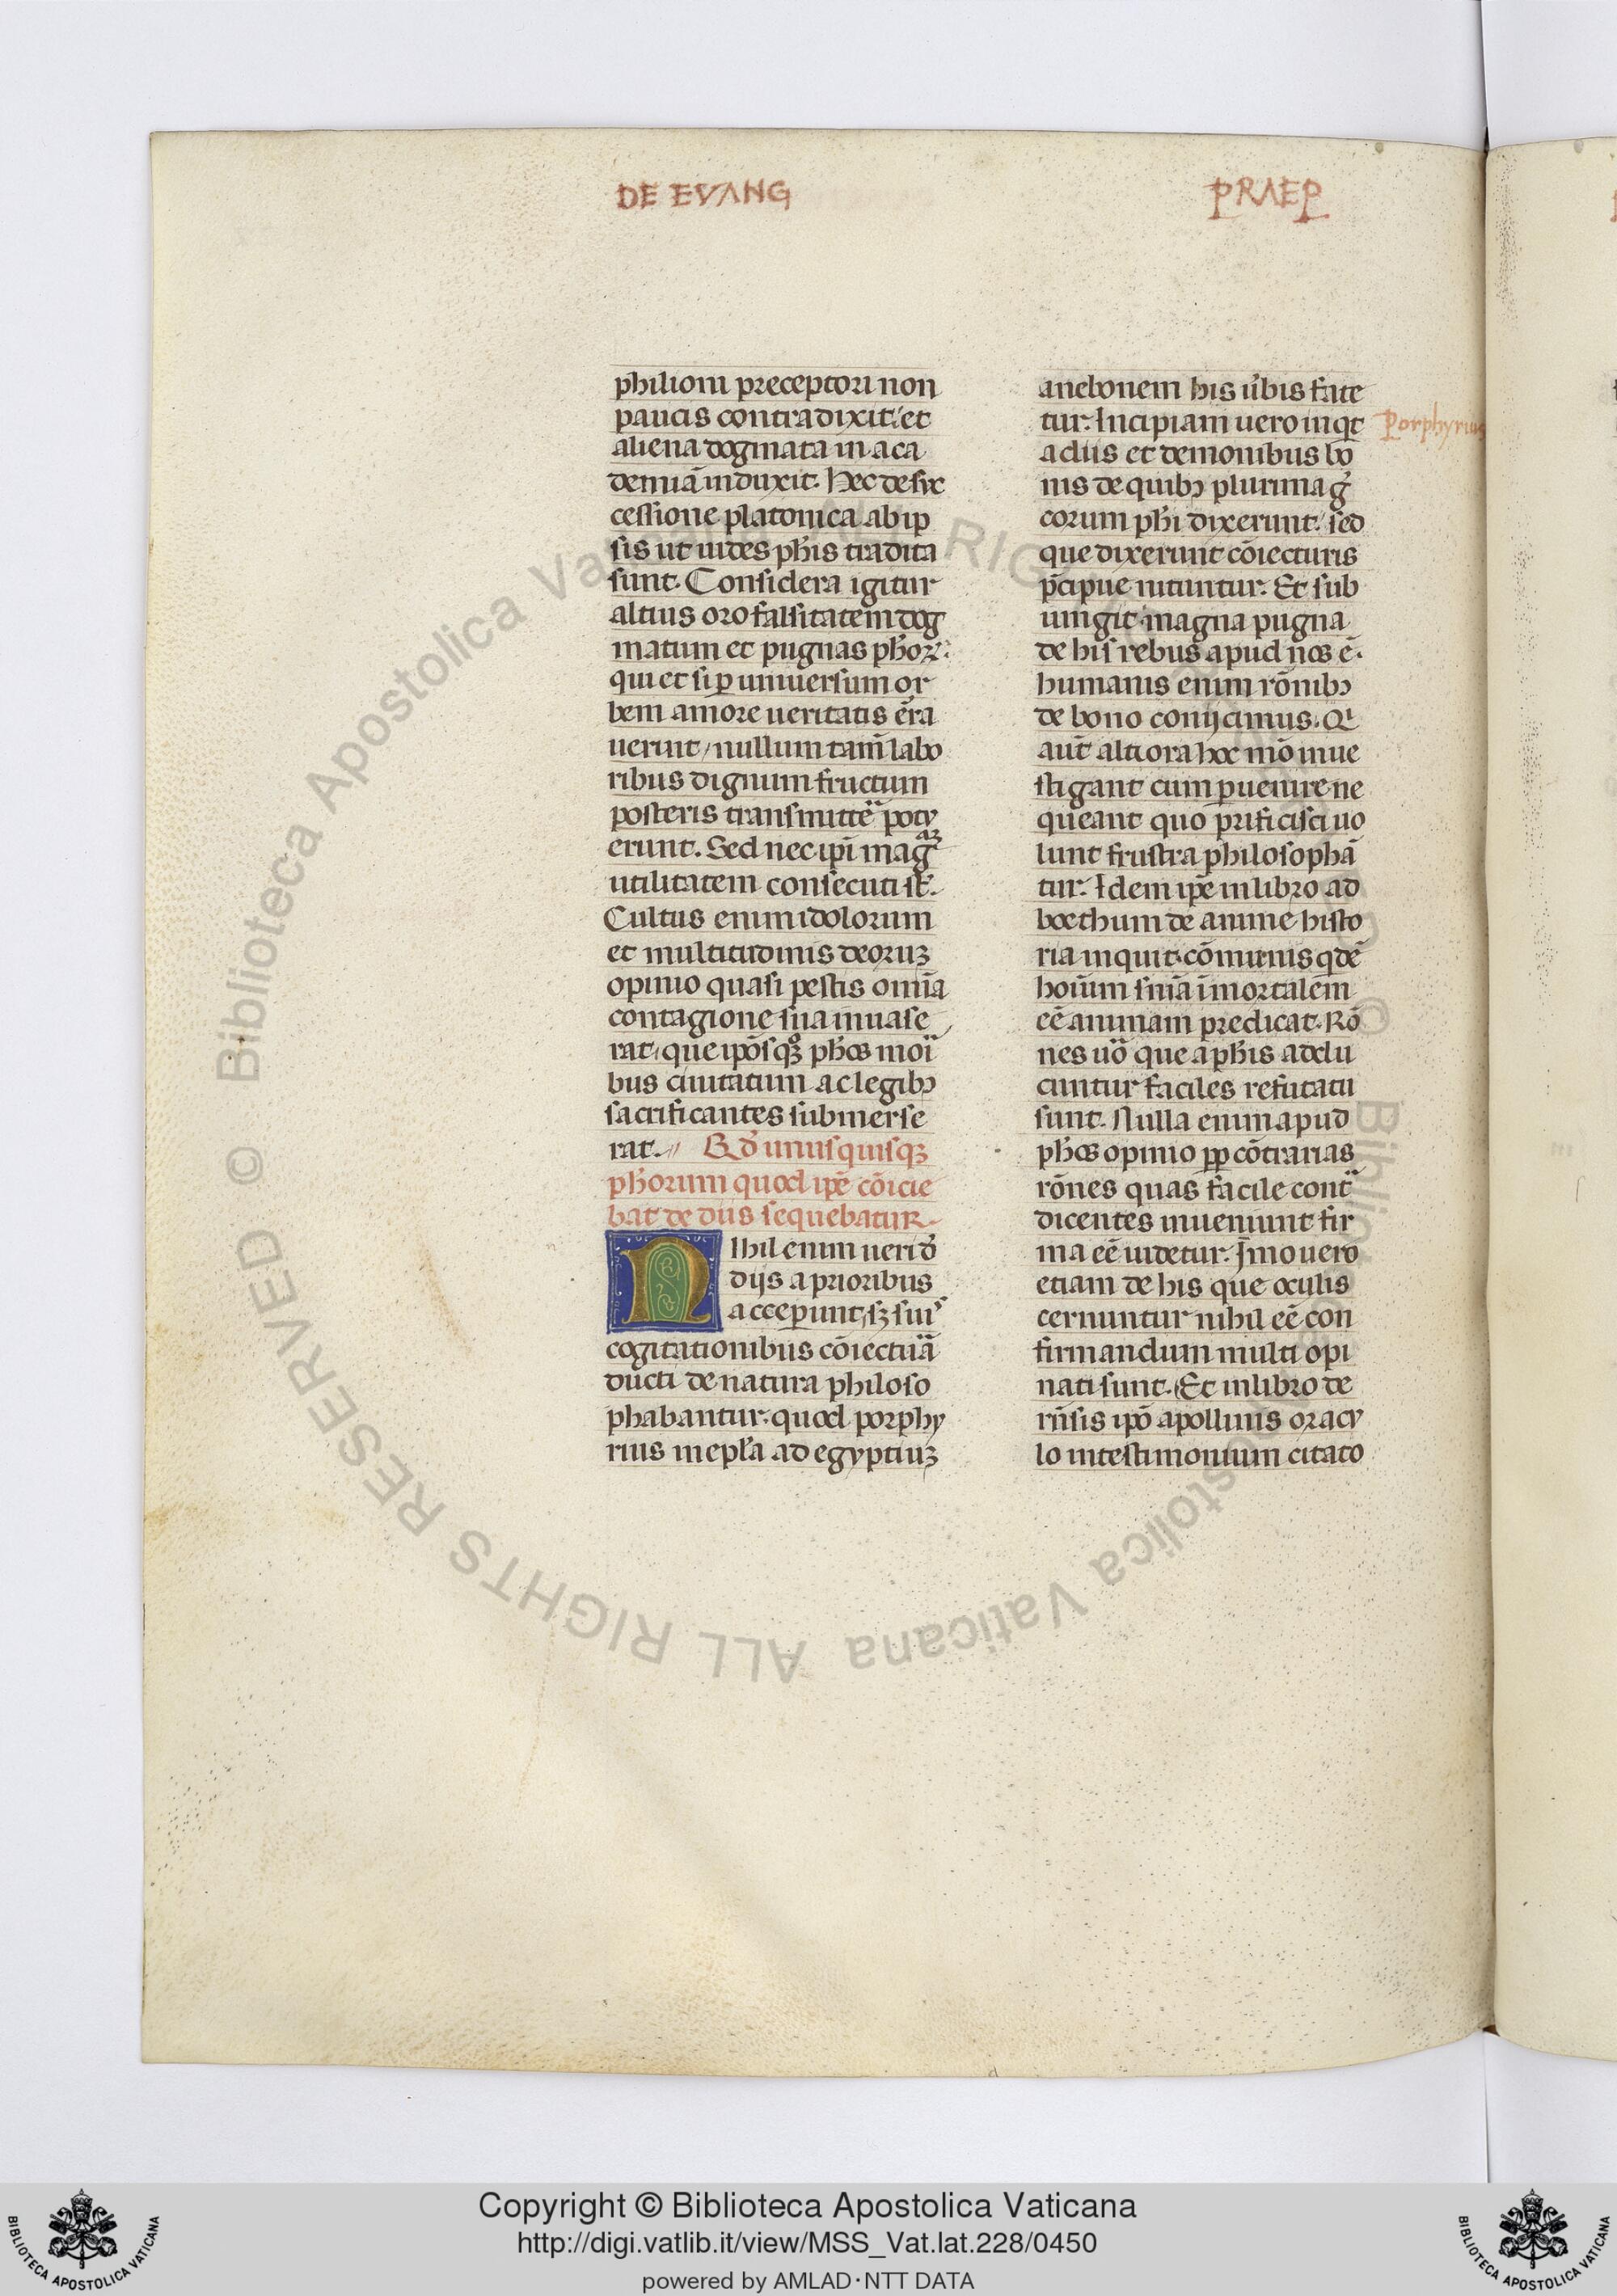 DE EVANG
PRAEP
philioni preceptori non
paucis contradixit: et
aliena dogmata in aca
demiā induxit. Hec de suc
cessione platonica ab ip
sis ut uides ph̄is tradita
sunt. Considera igitur
altius oro falsitatem dog
matum et pugnas ph̄oꝝ:
qui et si ꝑ uniuersum or
bem amore ueritatis ēra
uerint, nullum tam̄ labo
ribus dignum fructum
posteris transmittē potu
erunt. Sed nec ip̄i mag
utilitatem consecuti st̄.
Cultus enim idolorum
et multitudinis deoruꝫ
opinio quasi pestis om̄ia
contagione sua inuase
rat, que ip̄osqꝫ ph̄os moī
bus ciuitatum ac legibꝫ
sacrificantes submerse
rat. Qd̄ unusquisqꝫ
ph̄orum quod ip̄e cōicie
bat de diis sequebatur.
Nihil enim ueri d̄
dijs a prioribus
acceperunt, sꝫ suis
cogitationibus cōiectuā
ducti de natura philoso
phabantur: quod porphy
rius in epl̄a ad egyptiuꝫ
anebonem his ūbis fate
tur. Incipiam uero inqt
Porphyrius
a diis et demonibus bo
nis de quibꝫ plurima ḡ
corum ph̄i dixerunt: sed
que dixerunt cōiecturis
p̄cipue nituntur. Et sub
iungit magna pugna
de his rebus apud nos ē.
humanis enim rōnibꝫ
de bono conijcimus. Qi
aut̄ altiora hoc mō inue
stigant cum ꝑuenire ne
queant quo prificisci uo
lunt frustra philosophā
tur. Idem ip̄e in libro ad
boethum de anime histo
ria inquit cōmunis qdē
hoīum sn̄ia īmortalem
eē animam predicat. Rō
nes uō que a ph̄is addu
cuntur faciles refutatu
sunt. Nulla enim apud
ph̄os opinio ꝓp cōtrarias
rōnes quas facile cont
dicentes inueniunt fir
ma eē uidetur. Imo uero
etiam de his que oculis
cernuntur nihil eē con
firmandum multi opi
nati sunt. Et in libro de
rn̄sis ip̄o apollinis oracu
lo in testimonium citato
Copyright © Biblioteca Apostolica Vaticana
http://digi.vatlib.it/view/MSS_Vat.lat.228/0450
powered by AMLAD·NTT DATA
BIBLIOTECA APOSTOLICA VATICANA
BIBLIOTECA APOSTOLICA VATICANA
© Biblioteca Apostolica Vaticana ALL RIGHTS RESERVED © Biblioteca Apostolica Vaticana ALL RIGHTS RESERVED